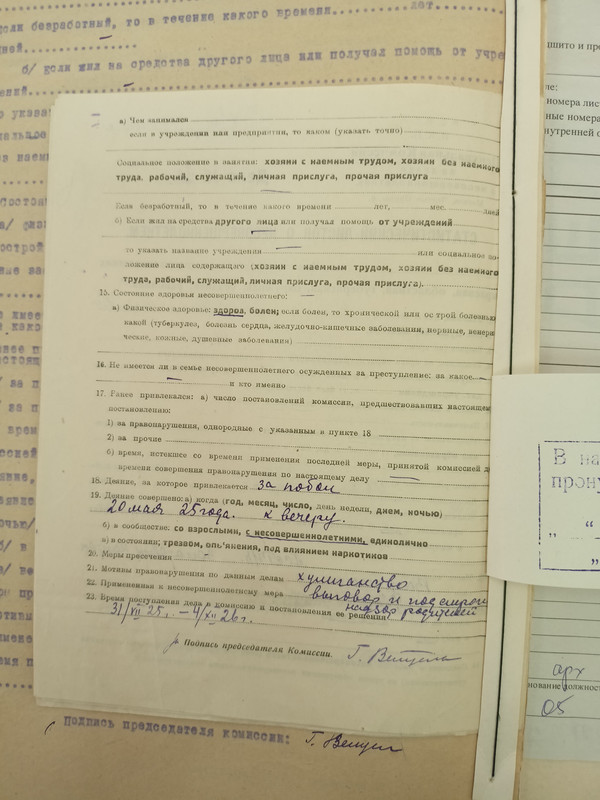 если безработный, то в течение какого времени..........лет,
дней
б/ если жил на средства другого лица или получал помощь от учре
а) Чем занимался
если в учреждении или предприятии, то каком (указать точно)
Социальное положение в занятии: хозяин с наемным трудом, хозяин без наемного
труда, рабочий, служащий, личная прислуга, прочая прислуга
Если безработный, то в течение какого времени лет, мес. дней
б) Если жил на средства другого лица или получал помощь от учреждений
то указать название учреждения — или социальное по-
ложение лица содержащего (хозяин с наемным трудом, хозяин без наемного
труда, рабочий, служащий, личная прислуга, прочая прислуга).
15. Состояние здоровья несовершеннолетнего: —
а) Физическое здоровье: здоров, болен; если болен, то хронической или острой болезнью
какой (туберкулез, болезнь сердца, желудочно-кишечные заболевания, нервные, венери-
ческие, кожные, душевные заболевания)
16. Не имеется ли в семье несовершеннолетнего осужденных за преступление: на какое —
— и кто именно
17. Ранее привлекался: а) число постановлений комиссии, предшествовавших настоящему
постановлению:
1) за правонарушения, однородные с указанным в пункте 18
2) за прочие
б) время, истекшее со времени применения последней меры, принятой комиссией до
времени совершения правонарушения по настоящему делу —
18. Деяние, за которое привлекается за побои
19. Деяние совершено: а) когда (год, месяц, число, день недели, днем, ночью)
20 мая 25 года. к вечеру.
б) в сообществе: со взрослыми, с несовершеннолетними, единолично
в) в состоянии; трезвом, опьянения, под влиянием наркотиков
20. Меры пресечения
21. Мотивы правонарушения по данным делам хулиганство
22. Примененная к несовершеннолетнему мера выговор и под
надзор родителей
23. Время поступления дела в комиссию и постановления ее решения
31/XII 25 г. — 4/XII 26 г.
Подпись председателя Комиссии.
Подпись председателя комиссии:
шито и про
номера лис
ные номера
нутренней о
В на
прону
арх
нование должност
05